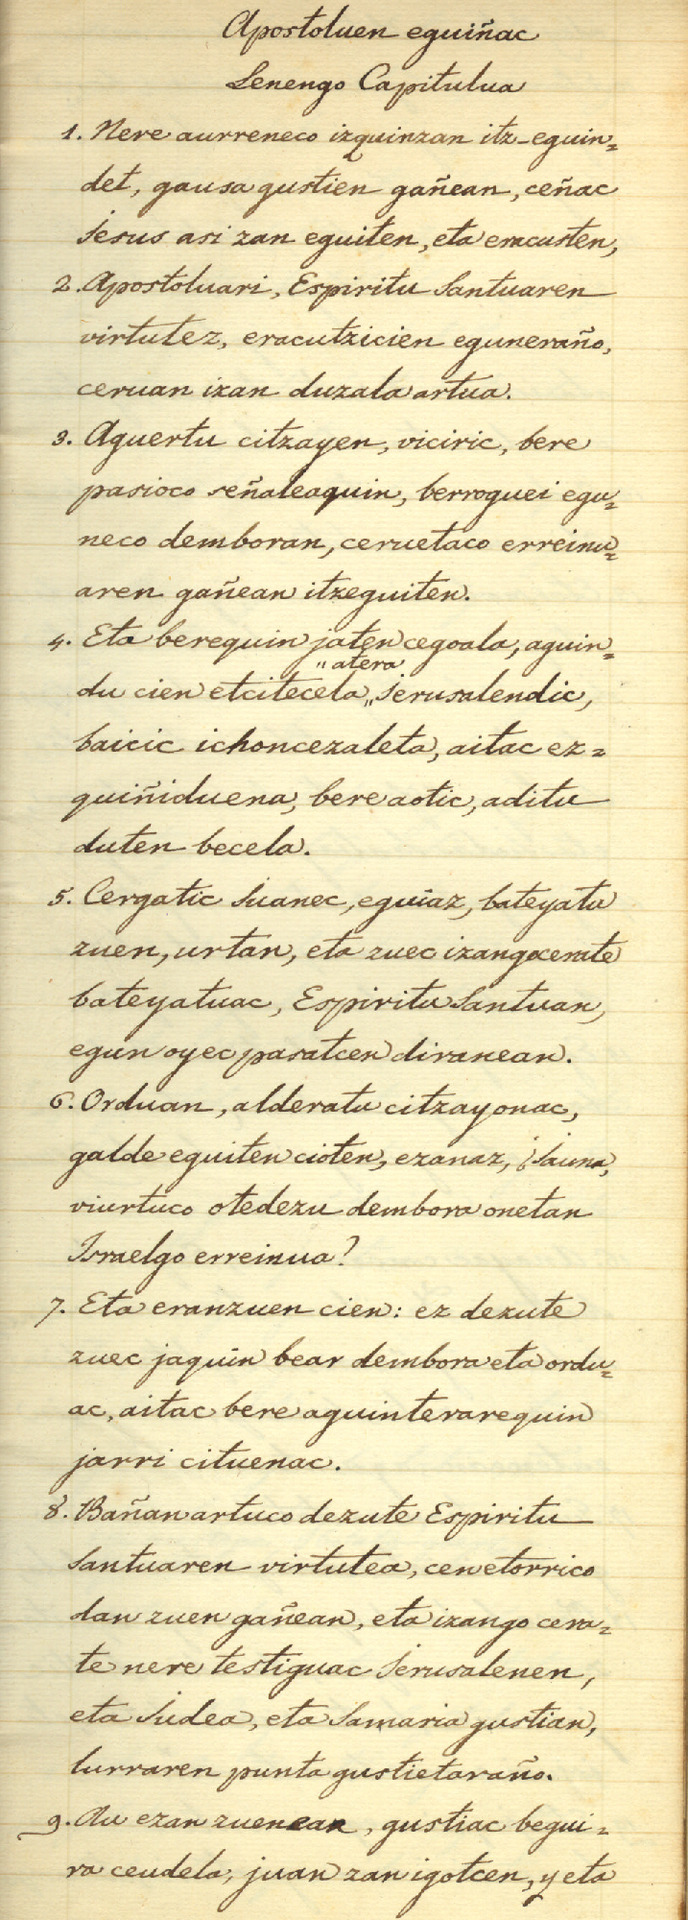 Apostoluen eguiñac
Lenengo Capitulua
1. Nere aurreneco izquinzan itz-eguin=
det, gausa gustien gañean, ceñac
Jesus asi zan eguiten, eta eracusten,
2. Apostoluari, Espiritu Santuaren
virtutez, eracutzicien eguneraño,
ceruan izan duzala artua.
3. Aguertu citzayen, viciric, bere
pasioco señaleaquin, berroguei egu=
neco demboran, ceruetaco erreinu=
aren gañean itzeguiten.
4. Eta berequin jaten cegoala, aguin=
" atera
du cien etcitecela „ Jerusalendic,
baicic ichoncezaleta, aitac ez=
quiñiduena, bere aotic, aditu
duten becela.
5. Cergatic Juanec, eguiaz, bateyatu
zuen, urtan, eta zuec izangocerate
bateyatuac, Espiritu Santuan,
egun oyec pasatcen diranean.
6. Orduan, alderatu citzayonac,
galde eguiten cioten, ezanaz, ¿Jauna,
viurtuco otedezu dembora onetan
Israelgo erreinua?
7. Eta eranzuen cien: ez dezute
zuec jaquin bear dembora eta ordu=
ac, aitac bere aguinterarequin
jarri cituenac.
8. Bañan artuco dezute Espiritu
Santuaren virtutea, cen etorrico
dan zuen gañean, eta izango cera=
te nere testiguac Jerusalenen,
eta Judea, eta Samaria gustian,
lurraren punta gustietaraño.
9. Au ezan zuenean, gustiac begui=
ra ceudela, juan zan igotcen, y eta